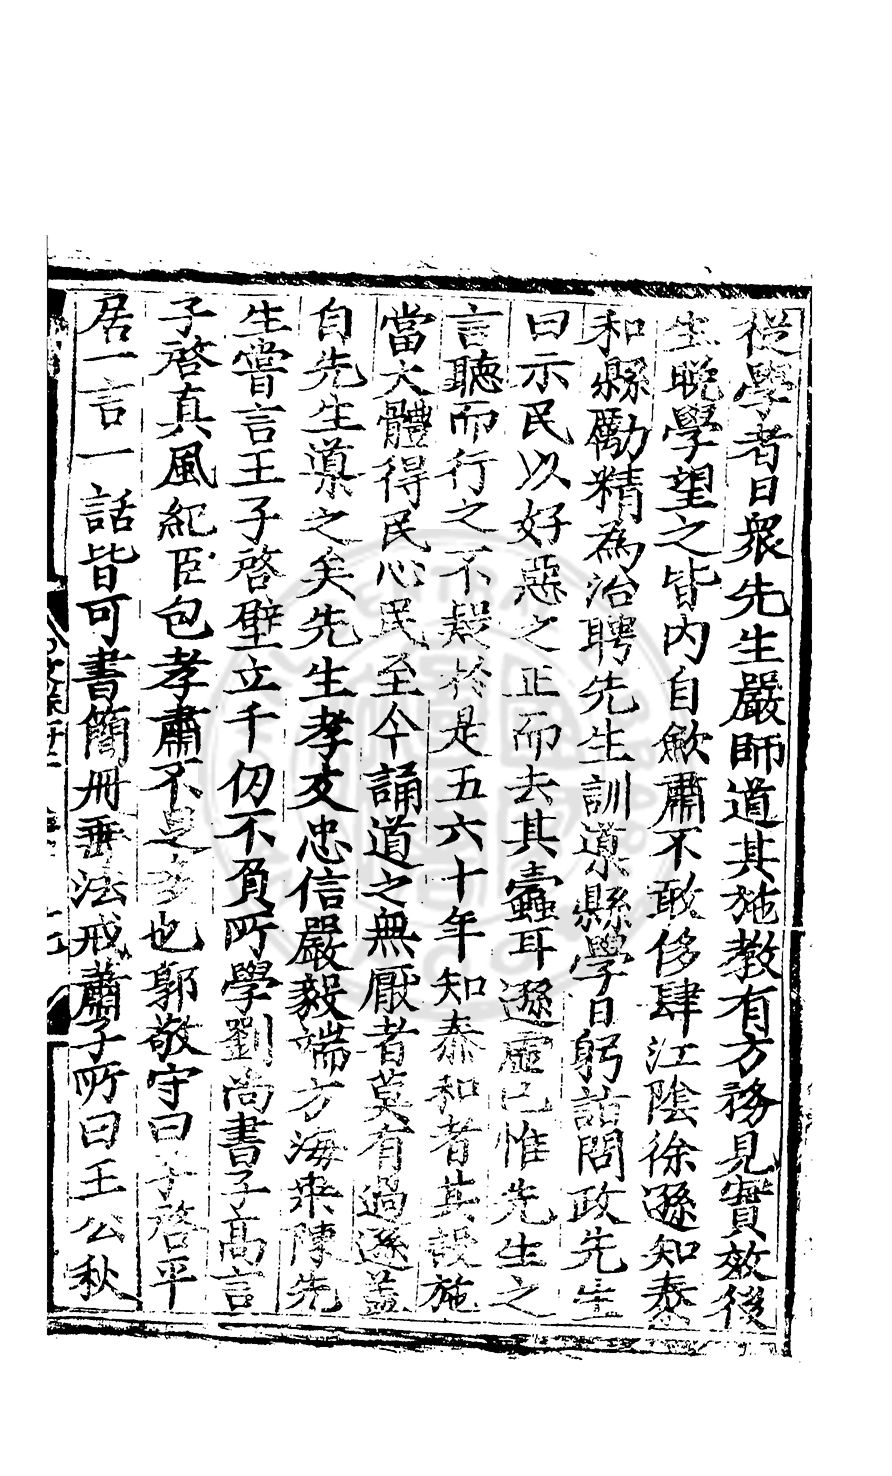 從學者日衆先生嚴師道其施教有方務見實效後
生晚學望之皆內自歛肅不敢侈肆江陰徐遜知泰
和縣勵精為治聘先生訓導縣學日躬詣問政先生
曰示民以好惡之正而去其蠹耳遜虛己惟先生之
言聽而行之不疑於是五六十年知泰和者其設施
當大體得民心民至今誦道之無厭者莫有過遜蓋
自先生導之矣先生孝友忠信嚴毅端方海桑陳先
生嘗言王子啓壁立千仞不負所學劉尚書子高言
子啓真風紀臣包孝肅不是多也郭敬守曰子啓平
居一言一話皆可書簡冊垂法戒蕭子所曰王公秋